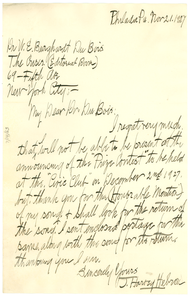 Philada Pa. Nov 21. 1927
Dr W. E. Burghardt Du Bois
The Crisis (Editorial Room)
69 - Fifth Ave
New York City. -
My Dear Dr. Du Bois:
I regret very much
that I will not be able to be present at the
announcement of the "Prize Contest" to be held
at the "Civic Club" on December 2nd 1927.
but thank you for the Honorable Mention
of my song & shall look for the return of
the song. I sent enclosed postage for the
same, along with this song for its return
thanking you I am.
Sincerely Yours
J. Harvey Hebron